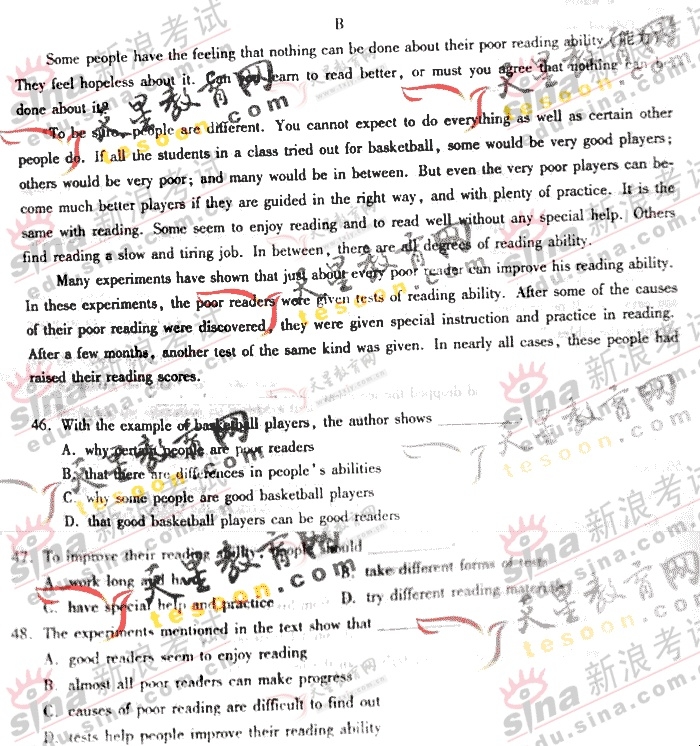 B
Some people have the feeling that nothing can be done about their poor reading ability (能力).
They feel hopeless about it. Can you learn to read better, or must you agree that nothing can be
done about it?
To be sure, people are different. You cannot expect to do everything as well as certain other
people do. If all the students in a class tried out for basketball, some would be very good players;
others would be very poor; and many would be in between. But even the very poor players can be-
come much better players if they are guided in the right way, and with plenty of practice. It is the
same with reading. Some seem to enjoy reading and to read well without any special help. Others
find reading a slow and tiring job. In between, there are all degrees of reading ability.
Many experiments have shown that just about every poor reader can improve his reading ability.
In these experiments, the poor readers were given tests of reading ability. After some of the causes
of their poor reading were discovered, they were given special instruction and practice in reading.
After a few months, another test of the same kind was given. In nearly all cases, these people had
raised their reading scores.
46. With the example of basketball players, the author shows ________.
A. why certain people are poor readers
B. that there are differences in people's abilities
C. why some people are good basketball players
D. that good basketball players can be good readers
47. To improve their reading ability, people should ________
A. work long and hard
B. take different forms of tests
C. have special help and practice
D. try different reading materials
48. The experiments mentioned in the text show that ________
A. good readers seem to enjoy reading
B. almost all poor readers can make progress
C. causes of poor reading are difficult to find out
D. tests help people improve their reading ability
sina 新浪考试
edu.sina.com.cn
天星教育网
tesoon.com